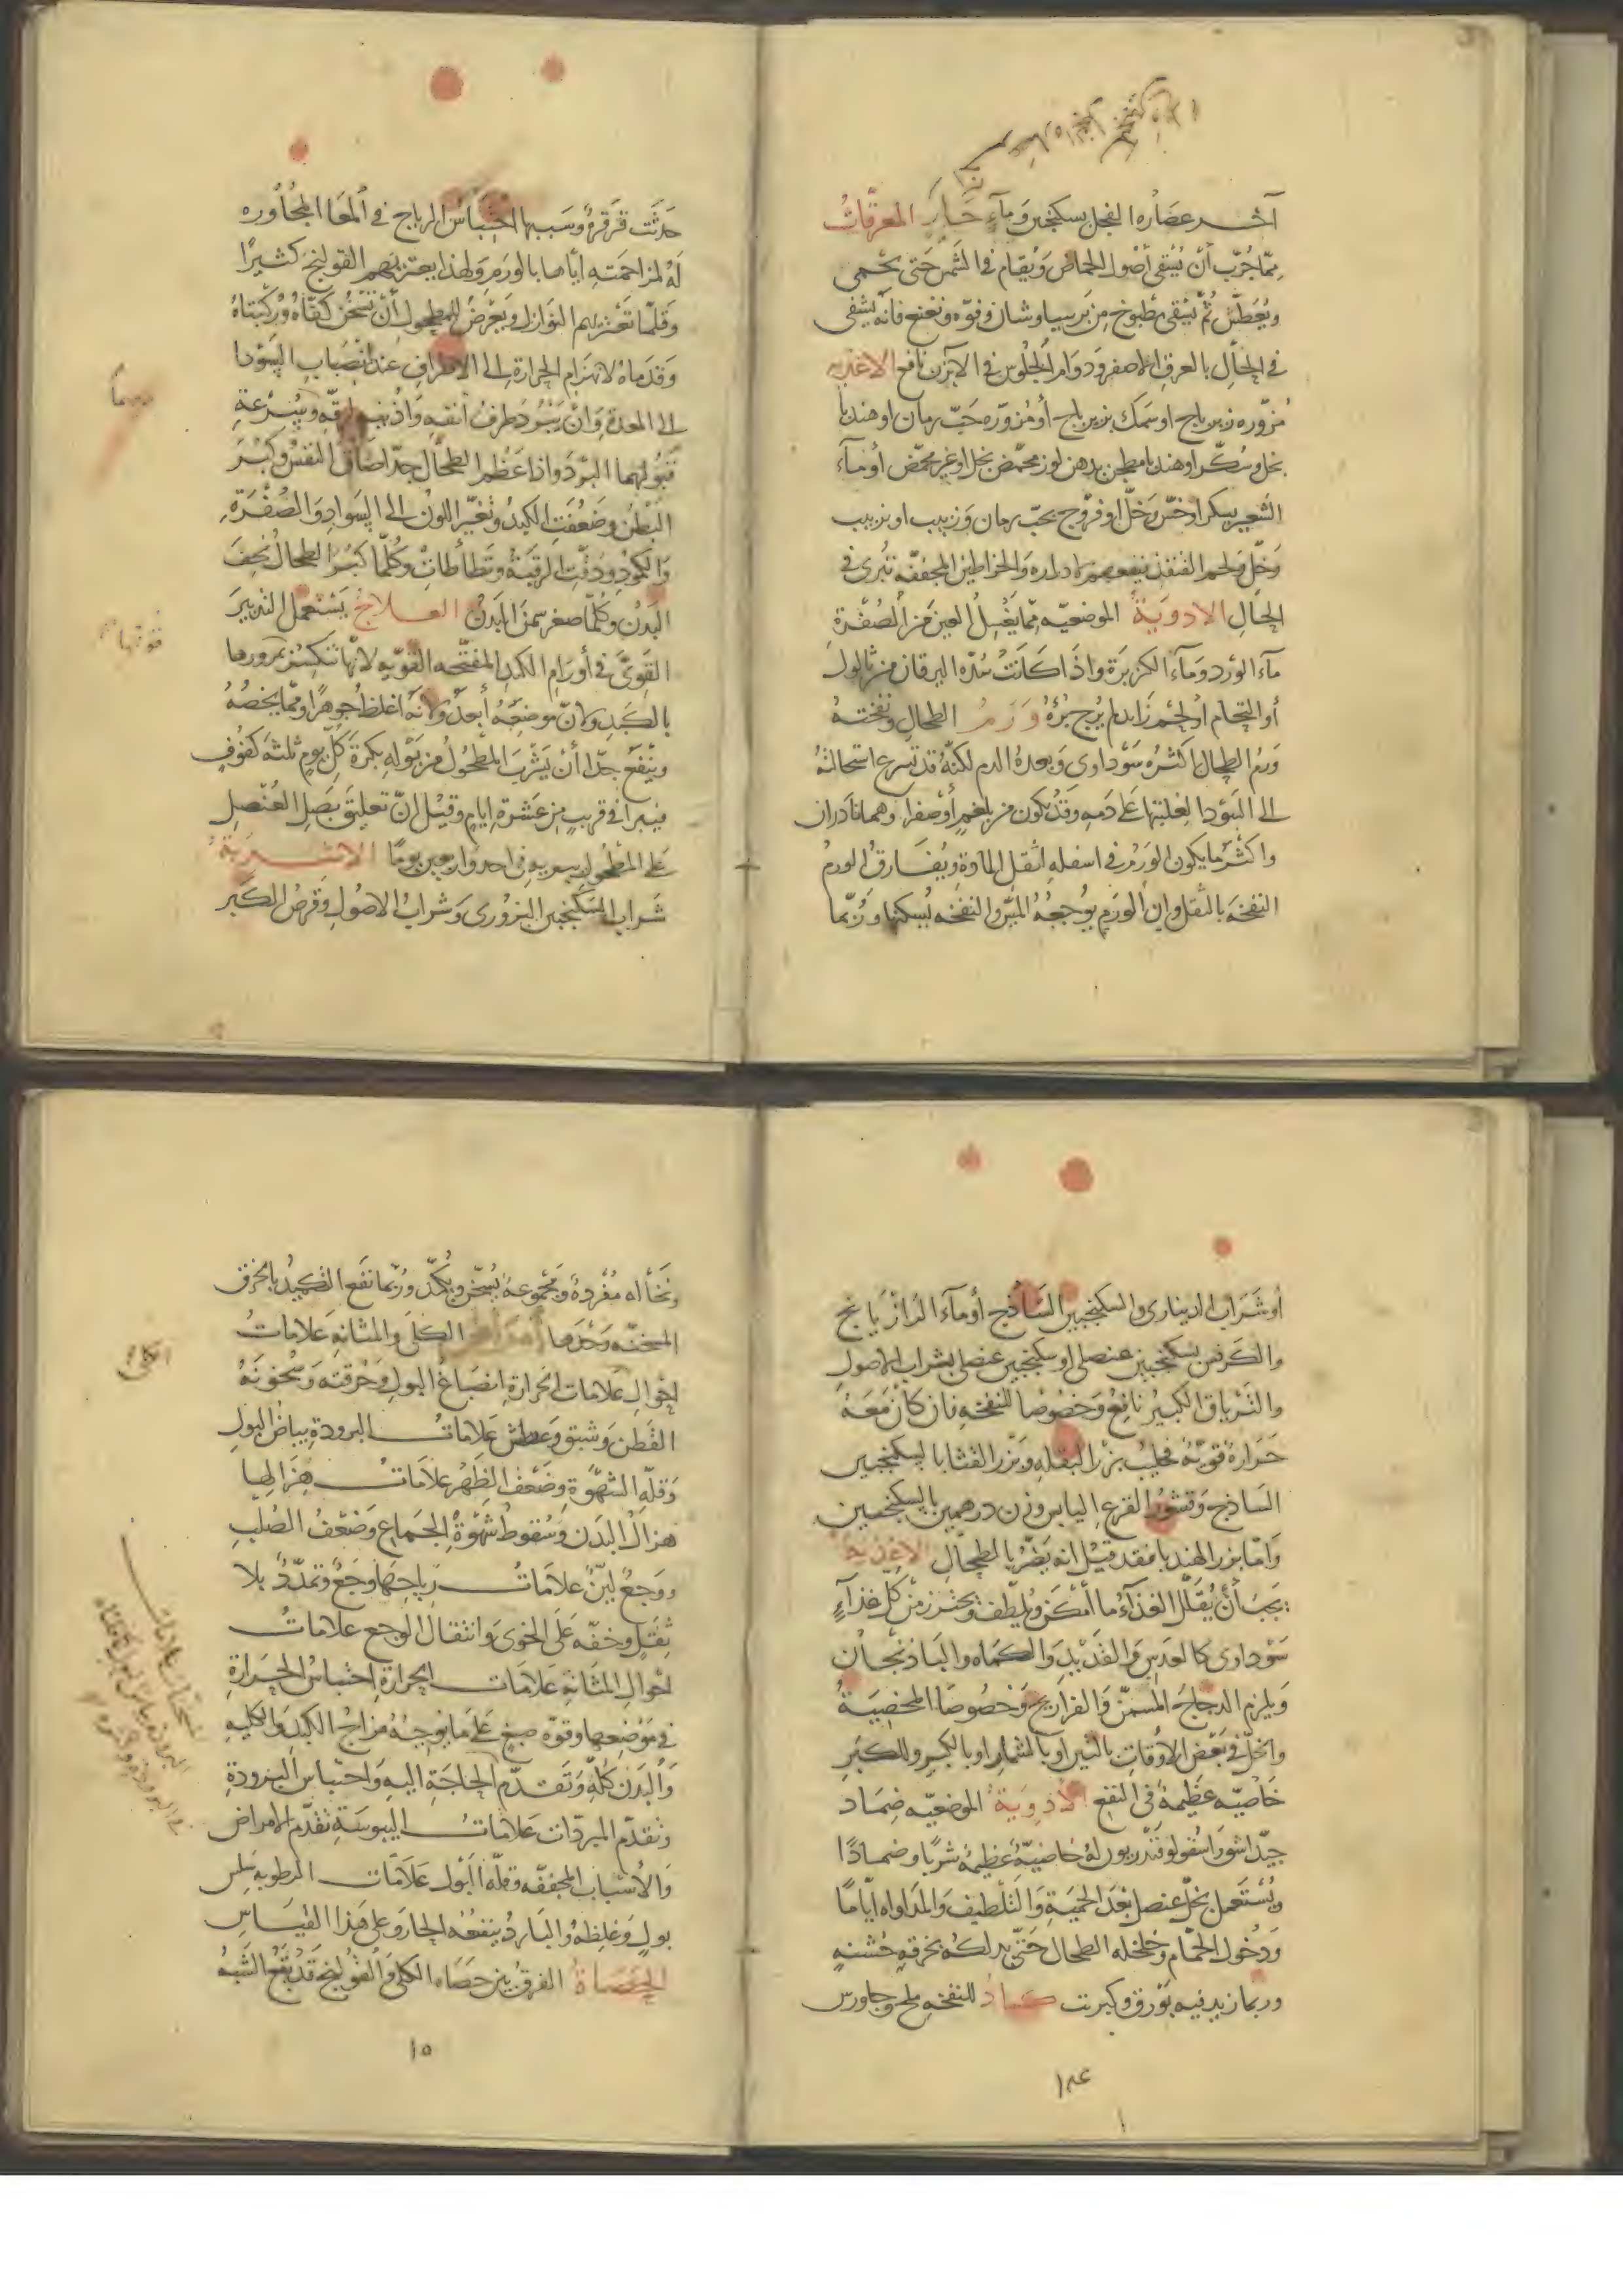 آخر عصاره الفجل بسكنجبين وماء حار المعرقات
مما جرب أن يسقى أصول الحماض ويقام في الشمس حتى يحمى
ويعطش ثم يسقى مطبوخ من برسياوشان وفوه ونعنع فانه يشفى
في الحال بالعرق الاصفر ودوام الجلوس في الابزن نافع الاغذيه
مزوره زيرباج او سمك بزيرباج أو مزوره حب رمان او هندبا
بخل وسكر او هندبا مطجن بدهن لوز محمض بخل او غير محمض أو ماء
الشعير بسكر او خس وخل او فروج بحب رمان وزبيب او زبيب
وخل ولحم القنفذ ينفعهم بادراره والخراطين المجففه تبرى في
الحال الادوية الموضعيه مما يغسل العين من الصفرة
ماء الورد وماء الكزبرة واذا كانت سده اليرقان من ثالول
أو التحام او لحم زايد لم يرج برؤه ورم الطحال ونفخته
ورم الطحال اكثره سوداوى وبعده الدم لكنه قد تسرع استحالته
الى السودا لغلبتها على دمه وقد يكون من بلغم أو صفرا وهما نادران
واكثر ما يكون الورم في اسفله لثقل المادة ويفارق الورم
النفخة بالثقل وان الورم يوجعه المس والنفخه يسكنها وربما
حدثت قرقرة وسببها احتباس الرياح في المعا المجاوره
له لمزاحمته اياها بالورم ولهذا يعتريهم القولنج كثيرا
وقلما تعتريهم النوازل ويعرض للمطحول أن تسخن كفاه وركبتاه
وقدماه لانهزام الحرارة الى الاطراف عند انصباب السودا
الى المعدة وان يسود طرف أنفه واذنه لرقه وسرعة
قبولهما البرد واذا عظم الطحال جدا ضاق النفس وكبر
البطن وضعفت الكبد وتغير اللون الى السواد والصفرة
والكمود ودقت الرقبة وتطأطأت وكلما كبر الطحال نحف
البدن وكلما صغر سمن البدن العلاج يستعمل التدبير
القوى في أورام الكبد المفتحه القويه لانها تنكسر بمرورها
بالكبد ولان موضعه أبعد ولانه اغلظ جوهرا ومما يخصه
وينفع جدا أن يشرب المطحول من بوله بكرة كل يوم ثلثه كفوف
فيبرا في قريب من عشرة ايام وقيل ان تعليق بصل العنصل
على المطحول يبريه في احد واربعين يوما الاشربة
شراب السكنجبين البزورى وشراب الاصول وقرص الكبر
أو شراب الدينارى والسكنجبين الساذج أو ماء الرازيانج
والكرفس بسكنجبين عنصلى او سكنجبين عنصلى بشراب الاصول
والترياق الكبير نافع وخصوصا للنفخه فان كان معه
حرارة قوية فحليب بزر البقله وبزر القثا بالسكنجبين
الساذج وقشور القرع اليابس وزن درهمين بالسكنجبين
واما بزر الهندبا فقد قيل انه يضر بالطحال الاغذيه
يجب أن يقلل الغذاء ما أمكن ويلطف ويحترز من كل غذاء
سوداوى كالعدس والقديد والكماه والباذنجان
ويلزم الدجاج المسمن والفراريج وخصوصا المخصية
والخل في بعض الاوقات بالتين او بالشمار او بالكبر وللكبر
خاصيه عظيمة في النفع الادوية الموضعيه ضماد
جيد اشق واسقولوقندريون له خاصية عظيمة شربا وضمادا
ويستعمل بخل عنصل بعد الحمية والتلطيف والمداواه اياما
ودخول الحمام وخلخله الطحال حتى يدلكه بخرقه خشنه
وربما زيد فيه بورق وكبريت كماد للنفخه ملح وجاورس
١٤٩
ونخاله مفردة ومجموعة يسخن ويكمد وربما نفع التكميد بالخرق
المسخنه وحدها أمراض الكلى والمثانه علامات
احوال علامات الحرارة انصباغ البول وحرقته وسخونة
القطن وشبق وعطش علامات البرودة بياض البول
وقله الشهوة وضعف الظهر علامات هزالها
هزال البدن وسقوط شهوة الجماع وضعف الصلب
ووجع لين علامات رياحها وجع وتمدد بلا
ثقل وخفه على الخوى وانتقال الوجع علامات
احوال المثانه علامات الحرارة احتباس الحرارة
في موضعها وقوه صبغ على ما يوجبه مزاج الكبد والكليه
والبدن كله وتقدم الحاجة اليه واحتباس البرودة
وتقدم المبردات علامات اليبوسة تقدم الامراض
والأسباب المجففه وقله البول علامات الرطوبه سلس
بول وغلظه والبارد ينفعه الحار وعلى هذا القياس
الحصاة الفرق بين حصاه الكلى والقولنج قد يقع الشبه
١٥